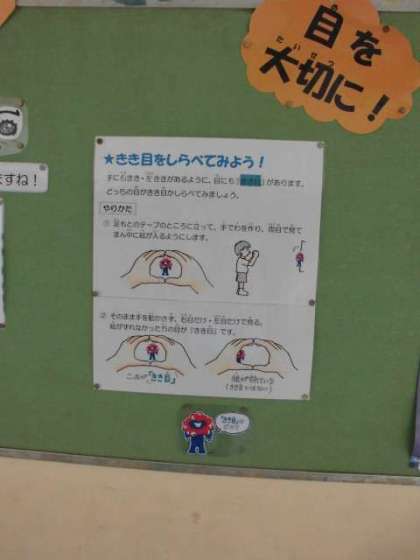 目を
たいせつ
大切に！
ますね！
★きき目をしらべてみよう！
手にも右きき・左ききがあるように、目にも「きき目」があります。
どっちの目がきき目かしらべてみましょう。
やりかた
① 足もとのテープのところに立って、手でわを作り、両目で見て
まん中に絵が入るようにします。
② そのまま手を動かさず、右目だけ・左目だけで見る。
絵がずれなかった方の目が「きき目」です。
これが「きき目」
絵がずれている
(きき目ではない)